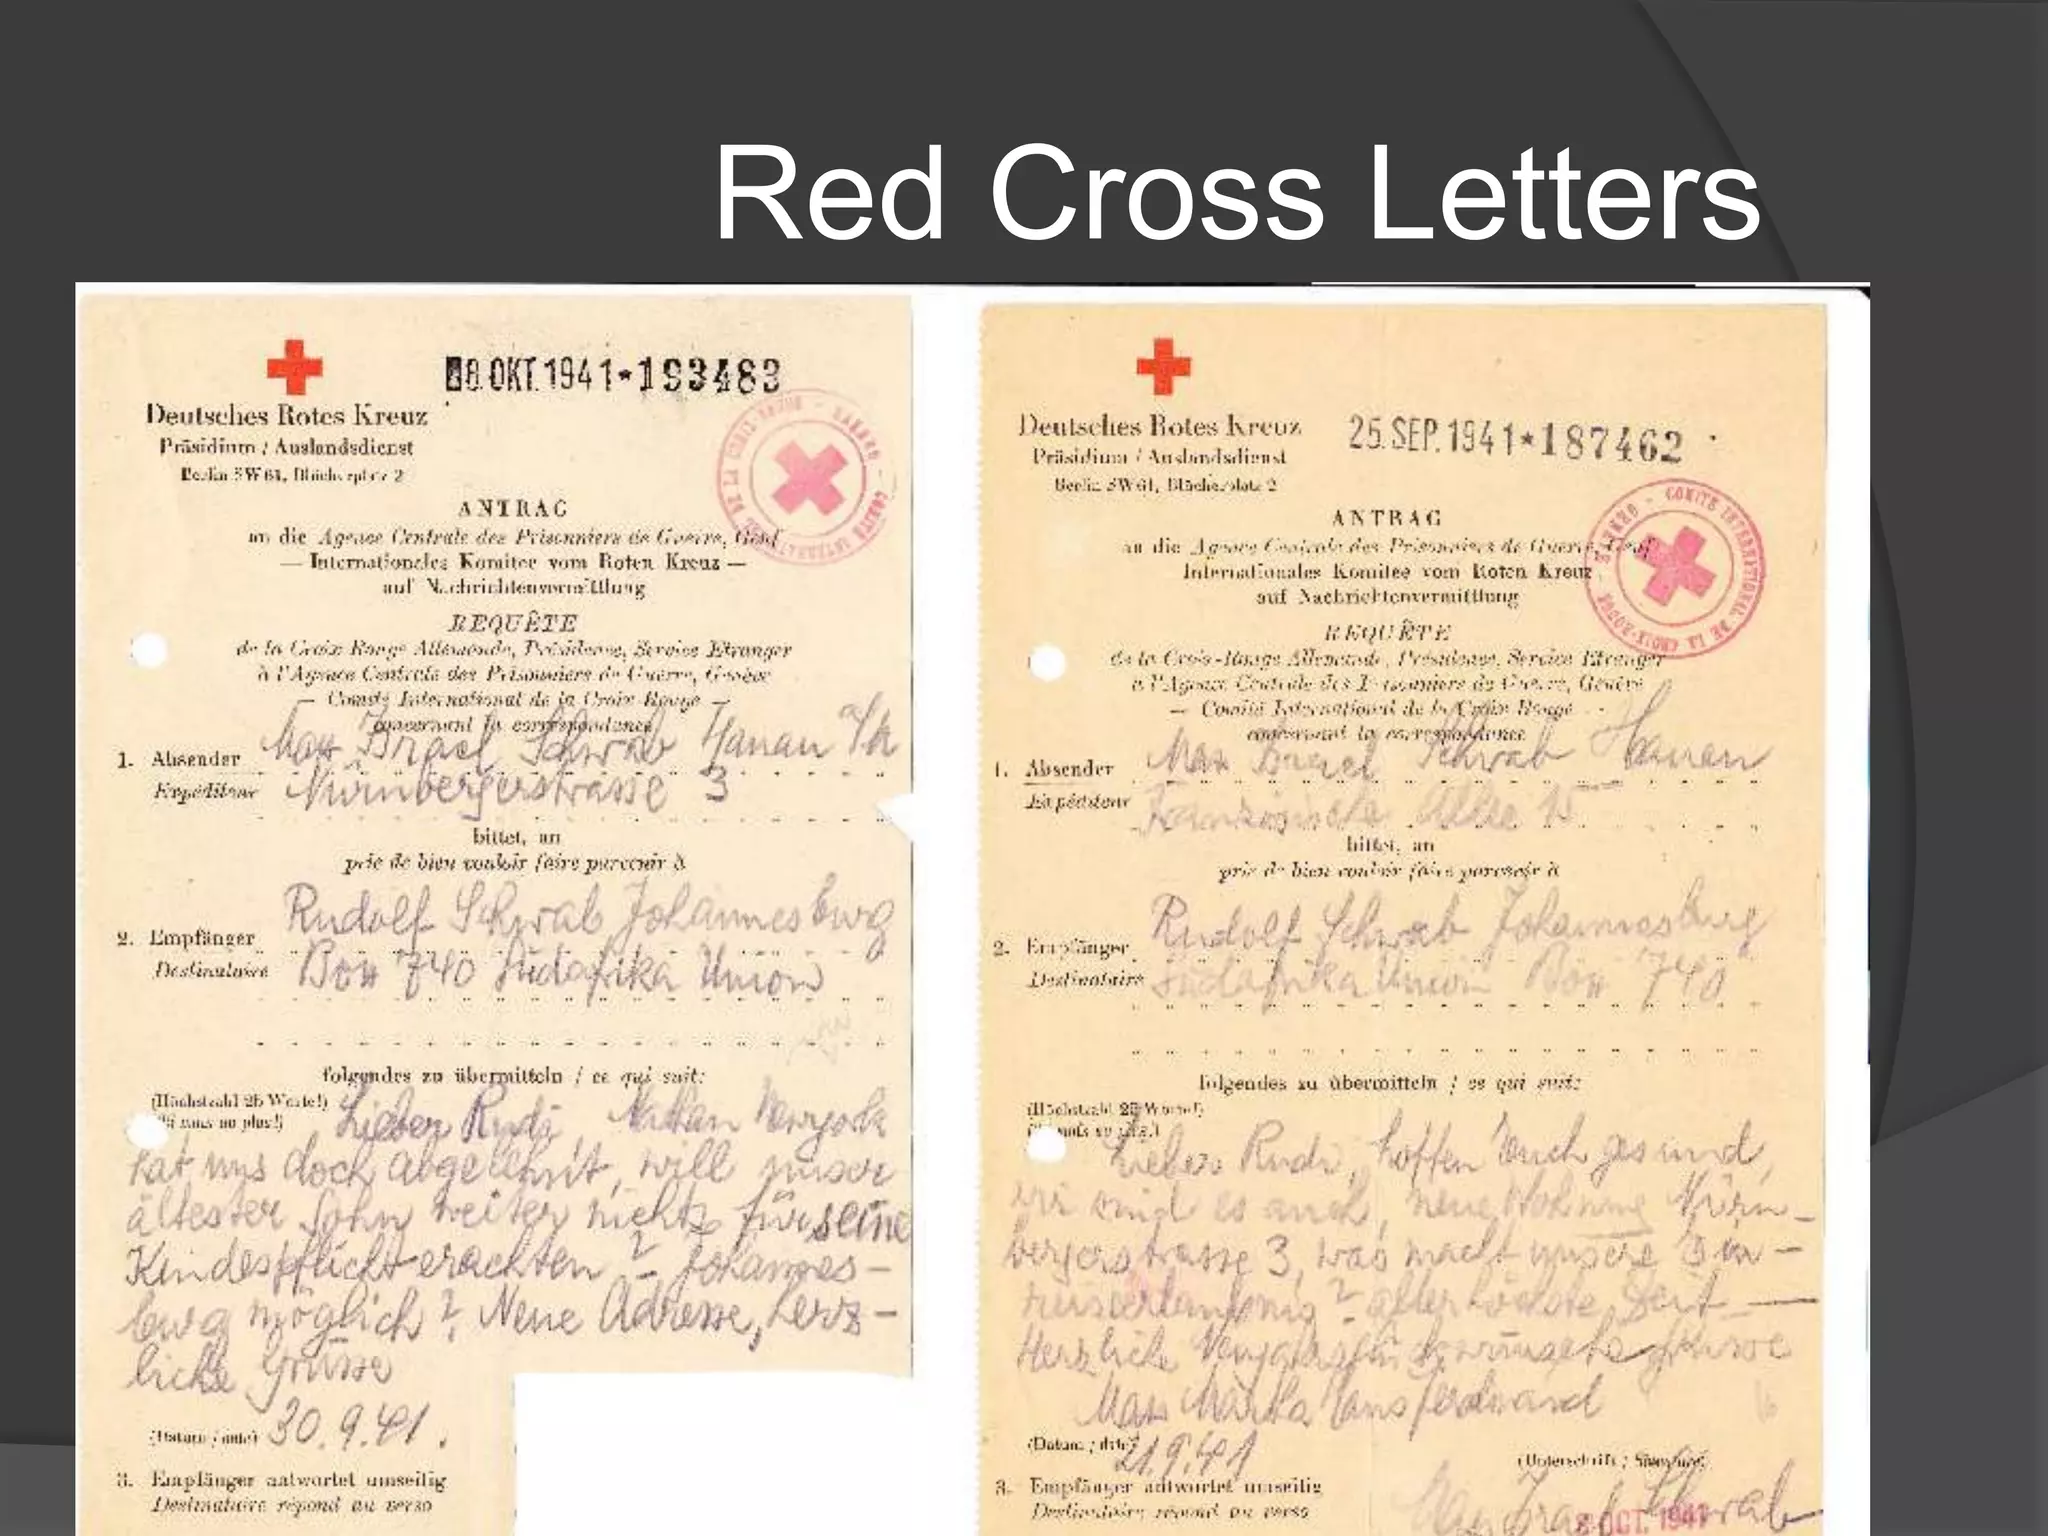 Red Cross Letters
Deutsches Rotes Kreuz
Präsidium / Auslandsdienst
Berlin SW 61, Blücherplatz 2
8. OKT. 1941 * 193483
ANTRAG
an die Agence Centrale des Prisonniers de Guerre, Genf
— Internationales Komitee vom Roten Kreuz —
auf Nachrichtenvermittlung
REQUÊTE
de la Croix-Rouge Allemande, Présidence, Service Etranger
à l'Agence Centrale des Prisonniers de Guerre, Genève
— Comité International de la Croix-Rouge —
concernant la correspondance
1. Absender Max Israel Schwab Hanau a/M
Expéditeur Nürnbergerstrasse 3
bittet, an
prie de bien vouloir faire parvenir à
2. Empfänger Rudolf Schwab Johannesburg
Destinataire Box 740 Südafrika Union
folgendes zu übermitteln / ce qui suit:
(Höchstzahl 25 Worte!)
(25 mots au plus!) Lieber Rudi, Nathan Newyork
hat uns doch abgelehnt, will unser
ältester Sohn weiter nichts für seine
Kindespflicht erachten? – Johannes-
burg möglich? Neue Adresse, herz-
liche Grüsse
(Datum / date) 30.9.41.
3. Empfänger antwortet umseitig
Destinataire répond au verso
Deutsches Rotes Kreuz
Präsidium / Auslandsdienst
Berlin SW 61, Blücherplatz 2
25. SEP. 1941 * 187462
COMITÉ INTERNATIONAL DE LA CROIX-ROUGE
ANTRAG
an die Agence Centrale des Prisonniers de Guerre, Genf
Internationales Komitee vom Roten Kreuz
auf Nachrichtenvermittlung
REQUÊTE
de la Croix-Rouge Allemande, Présidence, Service Etranger
à l'Agence Centrale des Prisonniers de Guerre, Genève
— Comité International de la Croix-Rouge
concernant la correspondance
1. Absender Max Israel Schwab Hanau
Expéditeur Französische Allee 15
bittet, an
prie de bien vouloir faire parvenir à
2. Empfänger Rudolf Schwab Johannesburg
Destinataire Südafrika Union Box 740
folgendes zu übermitteln / ce qui suit:
(Höchstzahl 25 Worte!)
(25 mots au plus!)
Lieber Rudi, hoffen Euch gesund,
wir sind es auch, neue Wohnung Nürn-
bergerstrasse 3, was macht unsere Ein-
reiseerlaubnis? allerhöchste Zeit —
Herzliche Grüsse
Max Martha Hans Ferdinand
(Datum / date) 21.9.41
(Unterschrift / Signature)
3. Empfänger antwortet umseitig Max Israel Schwab
Destinataire répond au verso
8 OCT. 1941